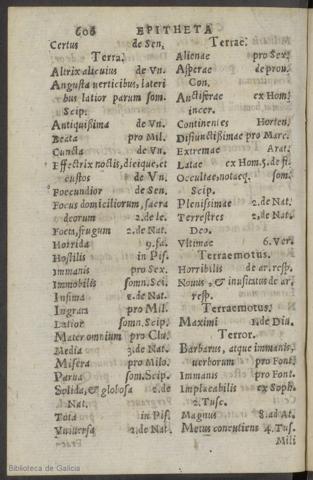 606 EPITHETA
Certus de Sen.
Terra.
Altrix alicuius de Vn.
Angusta verticibus, lateri
bus latior parum som.
Scip.
Antiquißima de Vn.
Beata pro Mil.
Cuncta de Vn.
Effectrix noctis, dieique, et
custos de Vn.
Foecundior de Sen.
Focus domiciliorum, sacra
deorum 2. de le.
Foeta, frugum 2. de Nat.
Horrida 9. fa.
Hostilis in Pis.
Immanis pro Sex.
Immobilis somn. Sci.
Infima 2. de Nat.
Ingrata pro Mil.
Latior somn. Scip.
Mater omnium pro Clu.
Media 3. de Nat.
Misera pro Milo.
Parua som. Scip.
Solida, & globosa 2. de
Nat.
Tota in Pis.
Vniuersa 2. de Nat.
Terrae.
Alienae pro Sex.
Asperae de prou.
Con.
Auctiferae ex Hom.
incer.
Continentes Horten.
Disiunctißimae pro Marc.
Extremae Arat.
Latae ex Hom. 5. de fi.
Occultae, notaeq. som.
Scip.
Plenißimae 2. de Nat.
Terrestres 2. de Nat.
Deo.
Vltimae 6. Ver.
Terraemotus.
Horribilis de ar. resp.
Nouus, & inusitatus de ar.
resp.
Terraemotus.
Maximi 1. de Diu.
Terror.
Barbarus, atque immanis,
verborum pro Font.
Immanis pro Font.
Implacabilis ex Soph.
2. Tusc.
Magnus 8. ad At.
Metus concutiens 4. Tus.
Mili
Biblioteca de Galicia